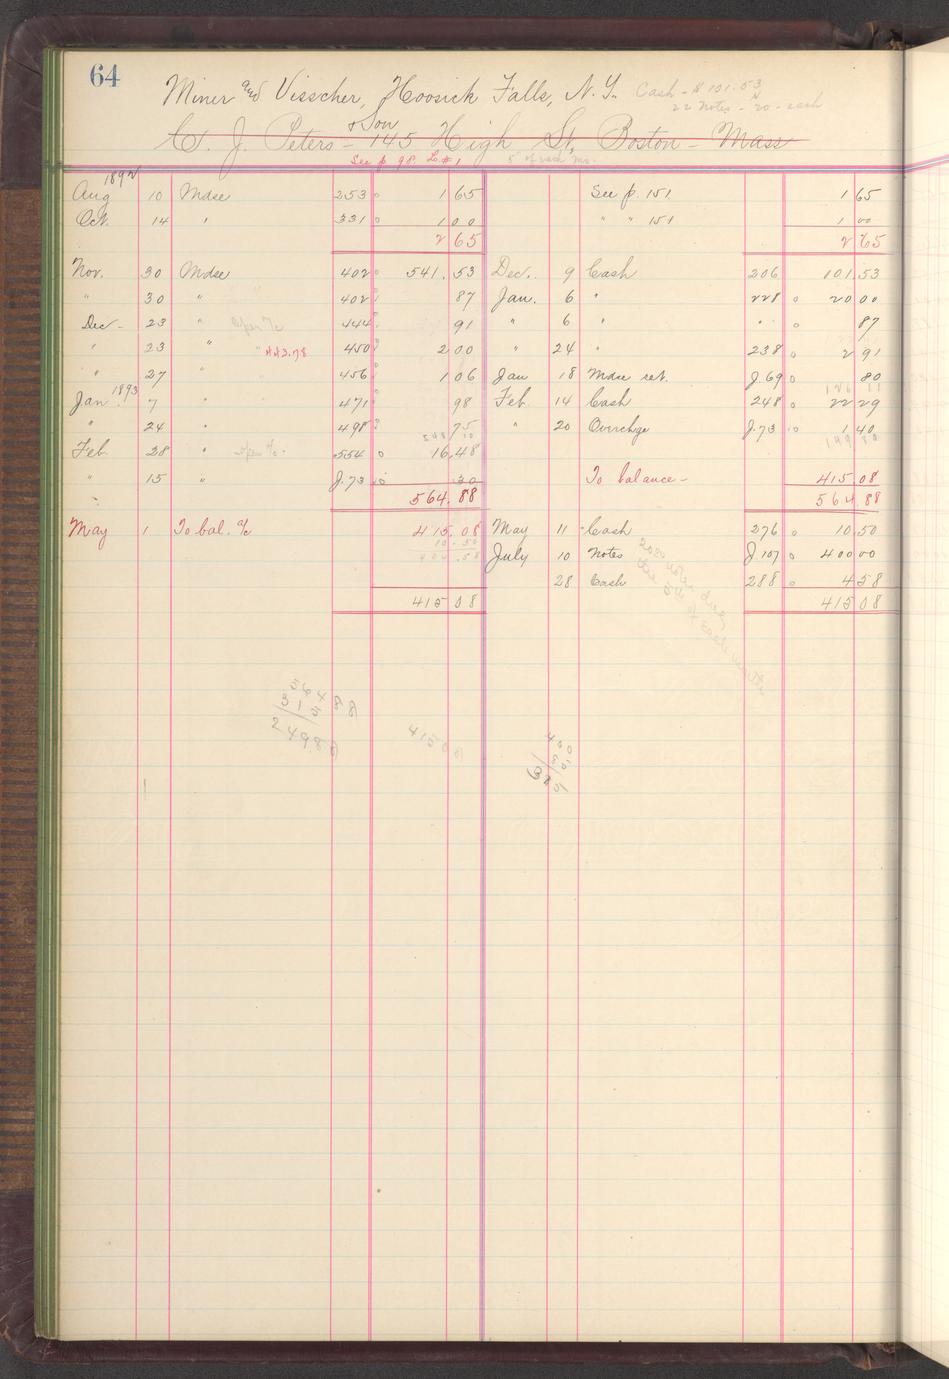 64
Miner and Visscher, Hoosick Falls, N.Y. Cash - $101.53
22 Notes - 20 - each
C. J. Peters & Son - 145 High St, Boston - Mass
See p 98 L. #1 5" of each mo.
1892
Aug 10 Mdse 253 1 65 See p. 151 1 65
Oct. 14 " 331 1 00 " " 151 1 00
2 65 2 65
Nov. 30 Mdse 402 541.53 Dec. 9 Cash 206 101.53
" 30 " 402 87 Jan. 6 " 228 20 00
Dec - 23 " Open a/c 444 91 " 6 " " 87
" 23 " " 443.78 450 2 00 " 24 " 238 2 91
" 27 " 456 1 06 Jan 18 Mdse ret. J.69 80
1893
Jan. 7 " 471 98 Feb. 14 Cash 248 22 29
" 24 " 498 75 " 20 Overchge J.73 1 40
548 10 149 80
Feb. 28 " open a/c - 554 16.48
" 15 " J.73 30 To balance - 415 08
564.88 564 88
May 1 To bal. a/c 415.08 May 11 Cash 276 10.50
10.50
404.58 July 10 Notes J 107 400 00
28 Cash 288 4 58
415 08 415 08
20 notes due
the 5th of each month
564 88
315
249.88
415 08
400